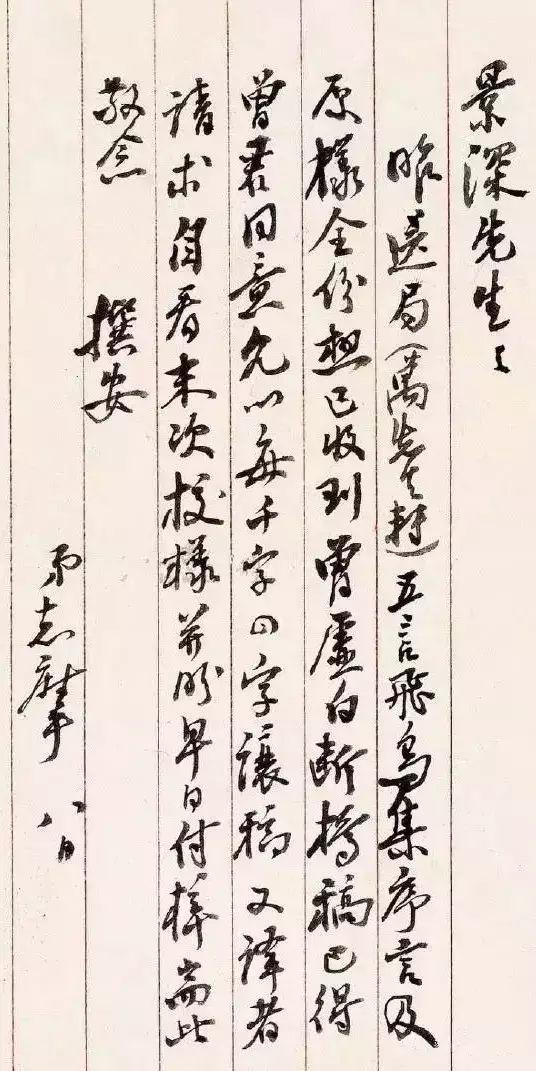 景深先生：
昨送局（萬先生轉）五言飛鳥集序言及
原樣全份想已收到曾虛白斷橋稿已得
曾君同意允以每千字四字讓稿又譯者
請求自看末次校樣并盼早日付样耑此
敬念
撰安
志摩 八日